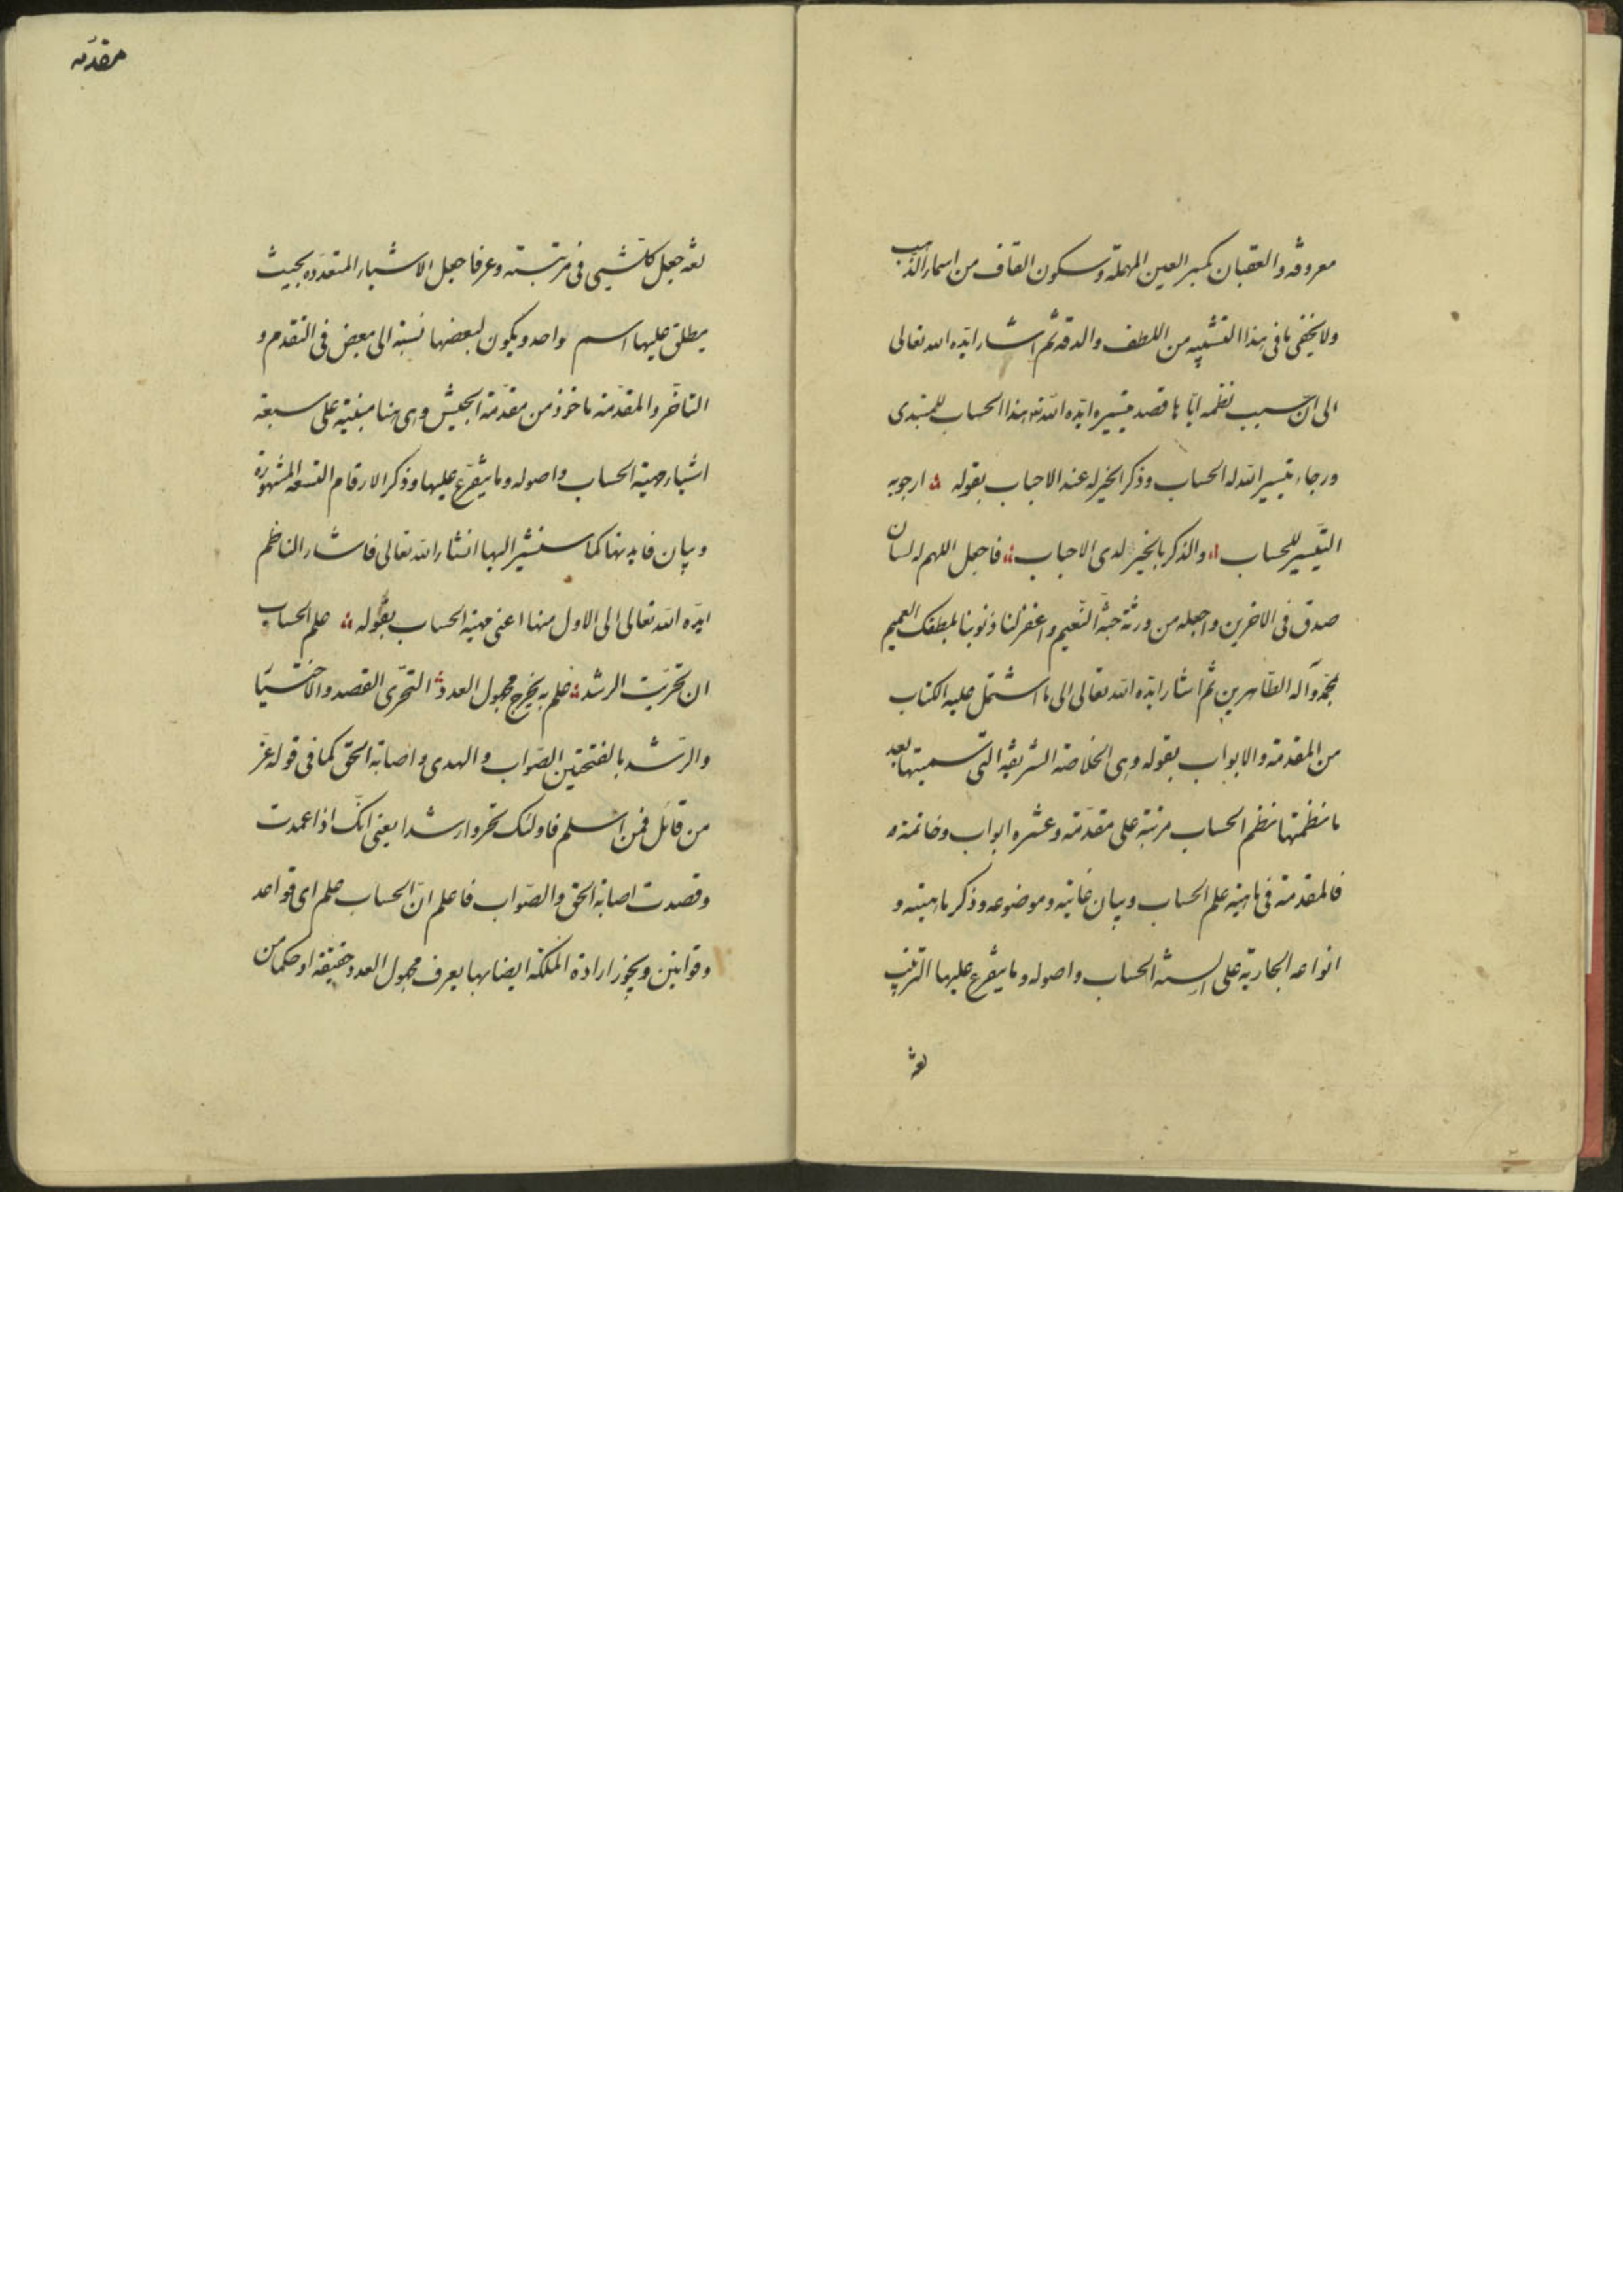 معروفة والعقيان بكسر العين المهملة وسكون القاف من اسماء الذهب
ولا يخفى ما فى هذا التشبيه من اللطف والدقة ثم اشار ايده الله تعالى
الى ان سبب نظمه اياها قصد تيسيره ايده الله تع هذا الحساب للمبتدى
ورجاء تيسير الله له الحساب وذكر الخير له عند الاحباب بقوله ارجو به
التيسير للحساب والذكر بالخير لدى الاحباب فاجعل اللهم له لسان
صدق فى الاخرين واجعله من ورثة جنة النعيم واغفر لنا ذنوبنا بلطفك العميم
بمحمد وآله الطاهرين ثم اشار ايده الله تعالى الى ما اشتمل عليه الكتاب
من المقدمة والابواب بقوله وهى الخلاصة الشريفة التى سميتها بعد
ما نظمتها بنظم الحساب مرتبة على مقدمة وعشره ابواب وخاتمة
فالمقدمة فى ماهية علم الحساب وبيان غايته وموضوعه وذكر ماهيته و
انواعه الجارية على السنة الحساب واصوله وما يتفرع عليها الترتيب
لغة
مقدمه
لغة جعل كلشيى فى مرتبته وعرفا جعل الاشياء المتعدده بحيث
يطلق عليها اسم واحد ويكون لبعضها نسبة الى بعض فى التقدم و
التاخر والمقدمة ماخوذ من مقدمة الجيش وهى هنا مبنية على سبعة
اشياء مهية الحساب واصوله وما يتفرع عليها وذكر الارقام التسعة المشهورة
وبيان فايدتها كما ستشير اليها انشاء الله تعالى فاشار الناظم
ايده الله تعالى الى الاول منها اعنى مهية الحساب بقوله علم الحساب
ان تحريت الرشد علم به يخرج مجهول العدد التحرى القصد والاختيا
والرشد بالفتحتين الصواب والهدى واصابة الحق كما فى قوله عز
من قائل فمن اسلم فاولئك تحروا رشدا يعنى انك اذا عمدت
وقصدت اصابة الحق والصواب فاعلم ان الحساب علم اى قواعد
وقوانين ويجوز ارادة الملكة ايضا بها يعرف مجهول العدد حقيقة او حكما من